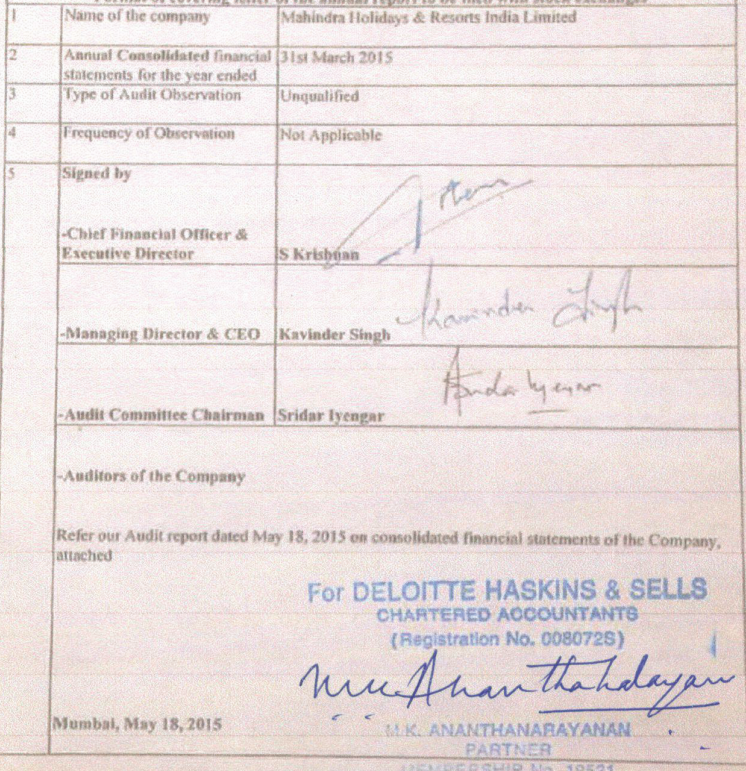 Format of covering letter of the annual report to be filed with stock exchanges
1 Name of the company Mahindra Holidays & Resorts India Limited
2 Annual Consolidated financial statements for the year ended 31st March 2015
3 Type of Audit Observation Unqualified
4 Frequency of Observation Not Applicable
5 Signed by
-Chief Financial Officer &
Executive Director S Krishnan
Kavinder Singh
-Managing Director & CEO Kavinder Singh
Sridar Iyengar
-Audit Committee Chairman Sridar Iyengar
-Auditors of the Company
Refer our Audit report dated May 18, 2015 on consolidated financial statements of the Company,
attached
For DELOITTE HASKINS & SELLS
CHARTERED ACCOUNTANTS
(Registration No. 008072S)
Mumbai, May 18, 2015
M.K. ANANTHANARAYANAN
PARTNER
MEMBERSHIP No. 19521